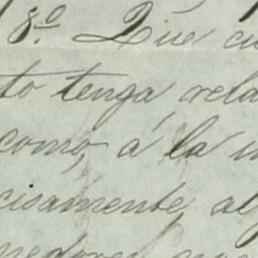 8º Que cu
to tenga rela
como, á la u
cisamente, al